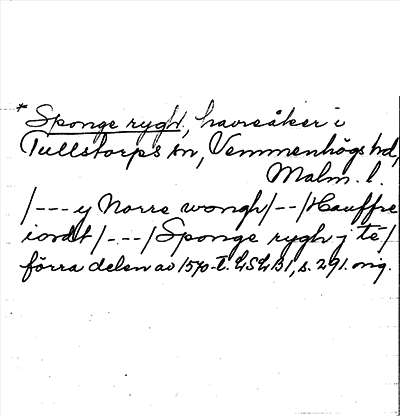 * Sponge rygh, havreåker i
Tullstorps sn, Vemmenhögs hd,
Malm. l.
/--- y Norre wongh/--/Hauffre
iordt/---/Sponge rygh j të/
förra delen av 1570-t. LSLB1, s. 291. orig.